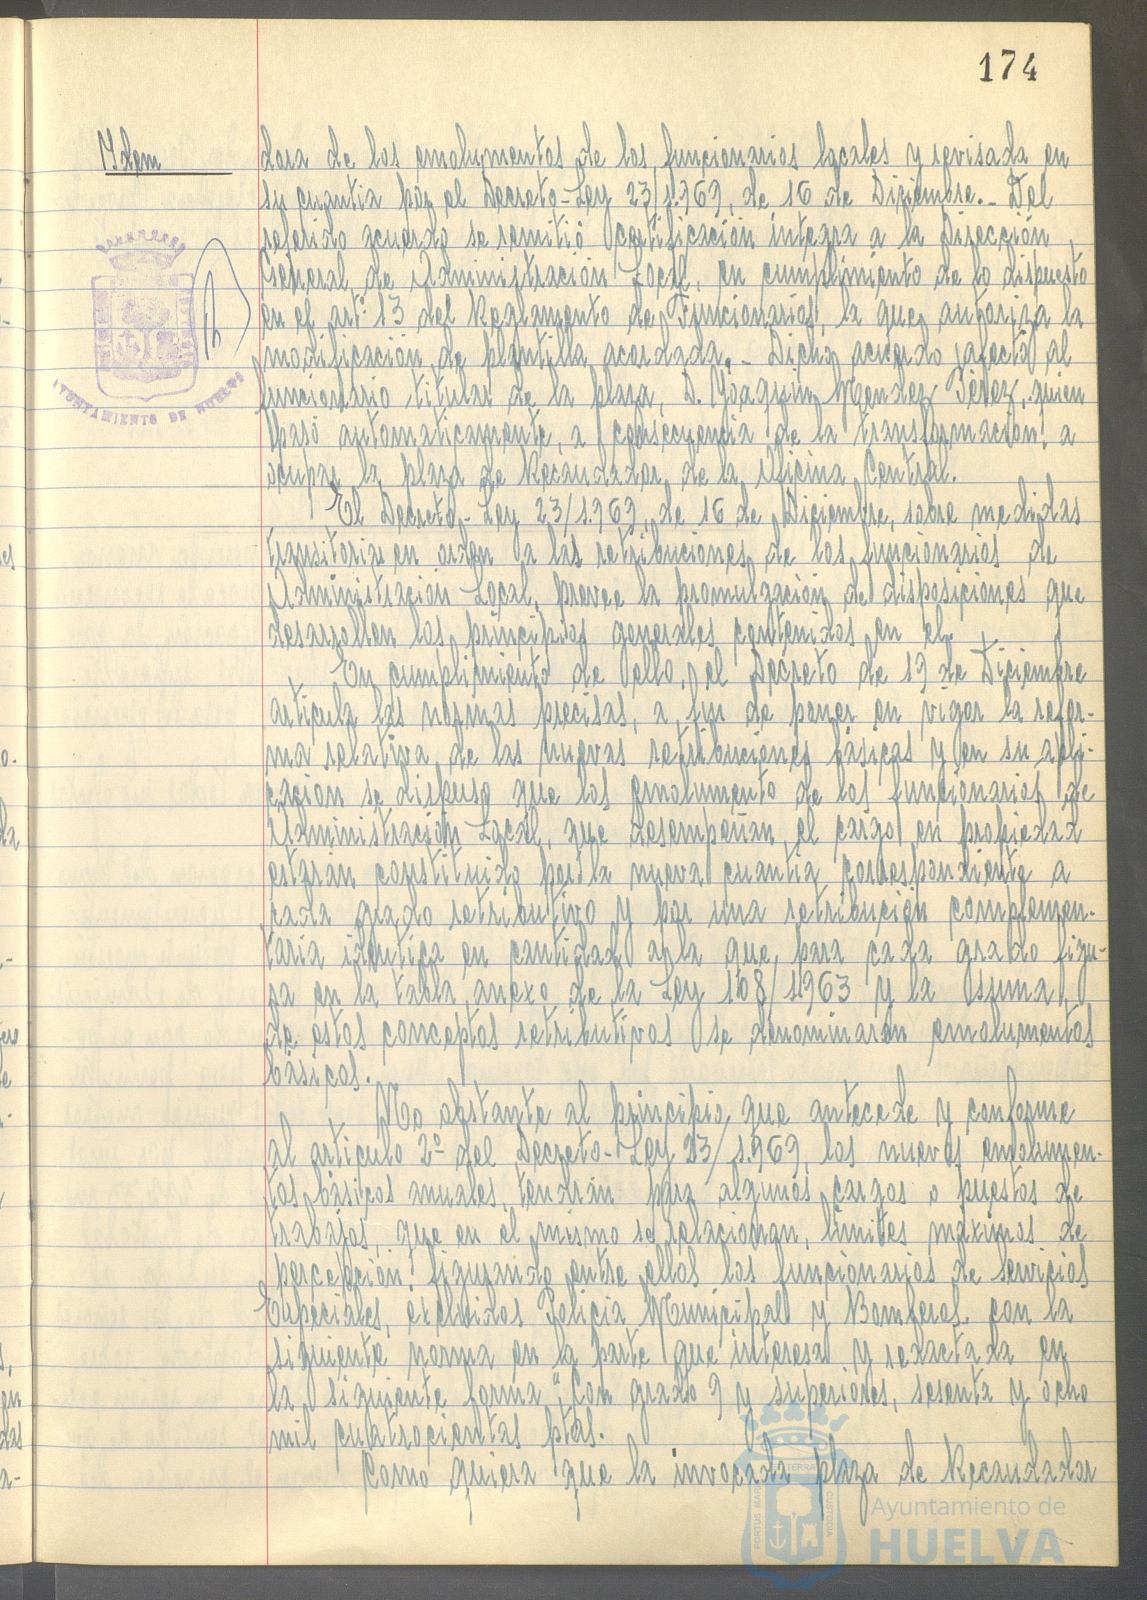 174
Idem
dora de los emolumentos de los funcionarios locales y revisada en
su cuantia por el Decreto-Ley 23/1.969, de 16 de Diciembre.- Del
referido acuerdo se remitió certificación integra a la Dirección
General de Administración Local, en cumplimiento de lo dispuesto
en el artº 13 del Reglamento de Funcionarios, la que autoriza la
modificación de plantilla acordada.- Dicho acuerdo afecta al
funcionario titular de la plaza, D. Joaquin Mendez Pérez, quien
pasó automaticamente, a consecuencia de la transformación, a
ocupar la plaza de Recaudador de la Oficina Central.
El Decreto-Ley 23/1.969, de 16 de Diciembre, sobre medidas
transitorias en orden a las retribuciones de los funcionarios de
Administración Local, prevee la promulgación de disposiciones que
desarrollen los principios generales contenidos en el.
En cumplimiento de ello, el Decreto de 19 de Diciembre
articula las normas precisas, a fin de poner en vigor la refor-
ma relativa de las nuevas retribuciones básicas y en su apli-
cación se dispuso que los emolumento de los funcionarios de
Administración Local, que desempeñan el cargo en propiedad
estarán constituido por la nueva cuantia correspondiente a
cada grado retributivo y por una retribución complemen-
taria identica en cantidad a la que para cada grado figu-
ra en la tabla anexo de la Ley 108/1.963 y la suma
de estos conceptos retributivos se denominarán emolumentos
básicos.
No obstante al principio que antecede y conforme
al articulo 2º del Decreto-Ley 23/1.969, los nuevos emolumen-
tos básicos anuales, tendrán para algunos cargos o puestos de
trabajos, que en el mismo se relacionan, limites máximos de
percepción, figurando entre ellos los funcionarios de Servicios
Especiales, excluidos Policia Municipal y Bomberos con la
siguiente norma en la parte que interesa y redactada en
la siguiente forma "Con grado 9 y superiores, sesenta y ocho
mil cuatrocientas ptas.
Como quiera que la invocada plaza de Recaudador
AYUNTAMIENTO DE HUELVA
PORTUS MARIS ET TERRAE CUSTODIA
Ayuntamiento de
HUELVA